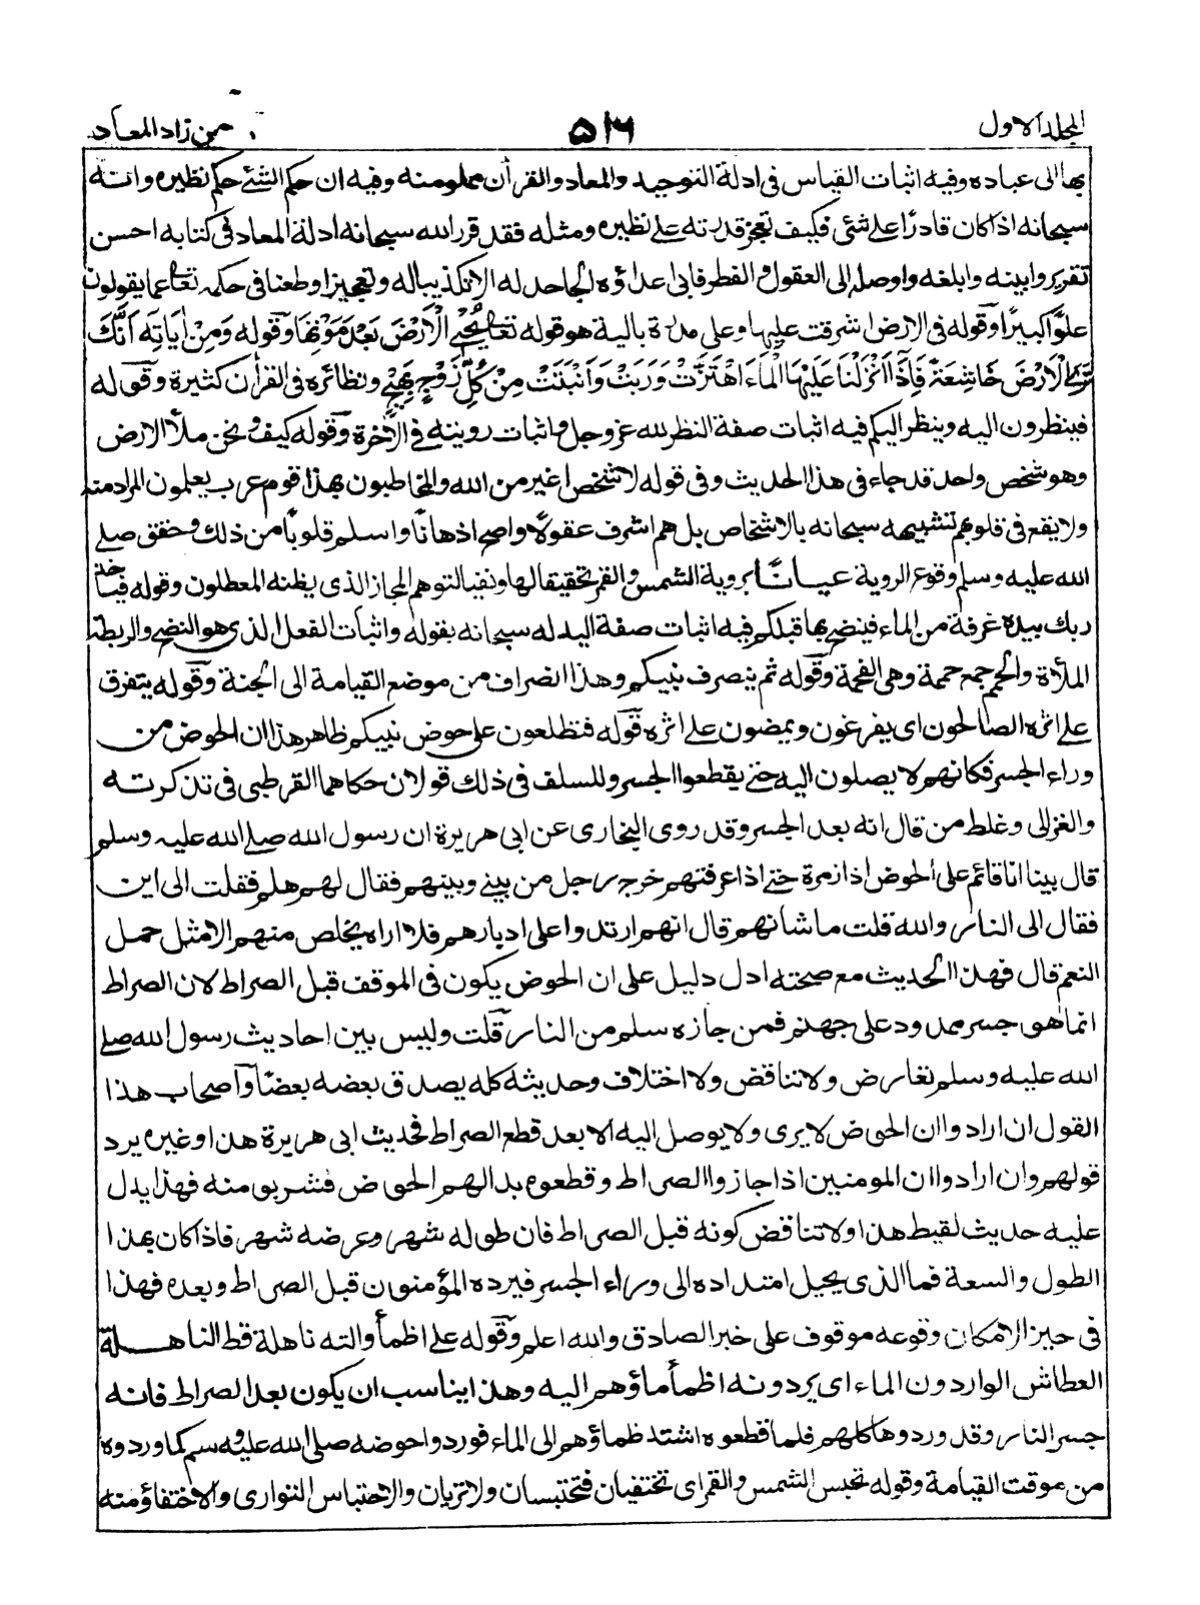 المجلد الاول
٥١٦
من زاد المعاد
بها الى عباده وفيه اثبات القياس فى ادلة التوحيد والمعاد والقرأن مملو منه وفيه ان حكم الشئ حكم نظيره وانه
سبحانه اذا كان قادرًا على شئى فكيف تعجز قدرته على نظيره ومثله فقد قرر الله سبحانه ادلة المعاد فى كتابه احسن
تقرير وابينه وابلغه واوصله الى العقول والفطر فابى اعداؤه الجاحد له الا تكذيبا له وتعجيزا وطعنا فى حكمه تعا عما يقولون
علوًا كبيرًا وقوله فى الارض اشرقت عليها وعلى مدرة بالية هو قوله تعا يُحْيِ الْاَرْضَ بَعْدَ مَوْتِهَا وقوله وَمِنْ اٰيَاتِهٖ اَنَّكَ
تَرَى الْاَرْضَ خَاشِعَةً فَاِذَا اَنْزَلْنَا عَلَيْهَا الْمَاءَ اهْتَزَّتْ وَرَبَتْ وَاَنْبَتَتْ مِنْ كُلِّ زَوْجٍ بَهِيْجٍ ونظائره فى القرأن كثيرة وقوله
فينظرون اليه وينظر اليكم فيه اثبات صفة النظر لله عز وجل واثبات رويته فى الاخرة وقوله كيف ونحن ملأ الارض
وهو شخص واحد قد جاء فى هذا الحديث وفى قوله لا شخص اغير من الله والمخاطبون بهذا قوم عرب يعلمون المراد منه
ولا يقع فى قلوبهم تشبيهه سبحانه بالاشخاص بل هم اشرف عقولًا واصح اذهانًا واسلم قلوبًا من ذلك وحقق صلے
الله عليه وسلم وقوع الروية عيانًا بروية الشمس والقمر تحقيقا لها ونفيا لتوهم المجاز الذى يظنه المعطلون وقوله فياخذ
ربك بيده غرفة من الماء فينضح بها قبلكم فيه اثبات صفة اليد له سبحانه بقوله واثبات الفعل الذى هو النضح والريطة
الملأة والحمم جمع حممة وهى الفحمة وقوله ثم ينصرف نبيكم وهذا انصراف من موضع القيامة الى الجنة وقوله يتفرق
على اثره الصالحون اى يفرغون ويمضون على اثره قوله فتطلعون على حوض نبيكم ظاهر هذا ان الحوض من
وراء الجسر فكانهم لا يصلون اليه حتى يقطعوا الجسر وللسلف فى ذلك قولان حكاهما القرطبى فى تذكرته
والغزالى وغلط من قال انه بعد الجسر وقد روى البخارى عن ابى هريرة ان رسول الله صلے الله عليه وسلم
قال بينا انا قائم على الحوض اذا زمرة حتى اذا عرفتهم خرج رجل من بينى وبينهم فقال لهم هلم فقلت الى اين
فقال الى النار والله قلت ما شانهم قال انهم ارتدوا على ادبارهم فلا اراه يخلص منهم الا مثل حمل
النعم قال فهذا الحديث مع صحته ادل دليل على ان الحوض يكون فى الموقف قبل الصراط لان الصراط
انما هو جسر ممدود على جهنم فمن جازه سلم من النار قلت وليس بين احاديث رسول الله صلے
الله عليه وسلم تعارض ولا تناقض ولا اختلاف وحديثه كله يصدق بعضه بعضًا واصحاب هذا
القول ان ارادوا ان الحوض لا يرى ولا يوصل اليه الا بعد قطع الصراط فحديث ابى هريرة هذا وغيره يرد
قولهم وان ارادوا ان المومنين اذا جازوا الصراط وقطعوه بدا لهم الحوض فشربو منه فهذا يدل
عليه حديث لقيط هذا ولا تناقض كونه قبل الصراط فان طوله شهر وعرضه شهر فاذا كان بهذا
الطول والسعة فما الذى يحيل امتداده الى وراء الجسر فيرده المؤمنون قبل الصراط وبعده فهذا
فى حيز الامكان وقوعه موقوف على خبر الصادق والله اعلم وقوله على اظمأ والله ناهلة قط الناهلة
العطاش الواردون الماء اى يردونه اظمأ ما هم اليه وهذا يناسب ان يكون بعد الصراط فانه
جسر النار وقد وردوها كلهم فلما قطعوه اشتد ظماؤهم الى الماء فوردوا حوضه صلى الله عليه وسلم كما وردوه
من موقت القيامة وقوله تحبس الشمس والقمر اى تختفيان فتحتبسان ولا تريان والاحتباس التوارى والاختفاؤ منه